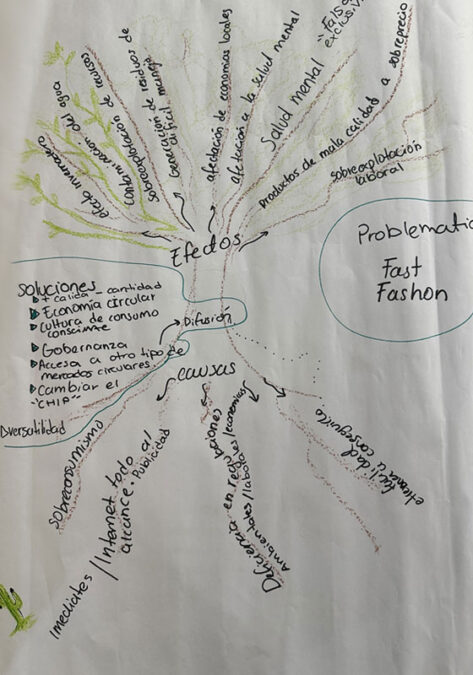 "Fals
exclusiv
efecto invernadero
contaminación del agua
sobreexplotación de recursos
Generación de residuos de
dificil manejo
afectación de economías locales
afectación a la salud mental
Salud mental
productos de mala calidad a sobreprecio
sobreexplotación
laboral
Efectos
Problematic
Fast
Fashon
soluciones
+ calida - cantidad
Economía circular
Cultura de consumo
conscimte
Gobernanza
Accesa a otro tipo de
mercados circulares.
Cambiar el
"CHIP"
Dversatilidad
Difusión
causas
sobreconsumismo
Imediates / Internet todo al
alcance. Publicidad
Deficiencia en regulaciones
Ambientales/laborales/economias
facilidad
conseguirlo